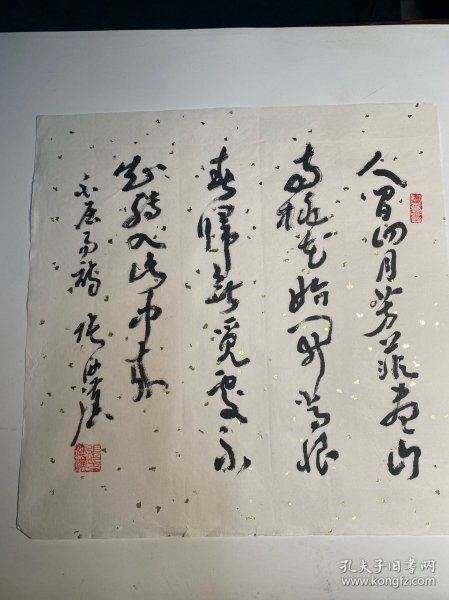 人间四月芳菲尽山
寺桃花始开长恨
春归无觅处不
知转入此中来
孔夫子旧书网
www.kongfz.com